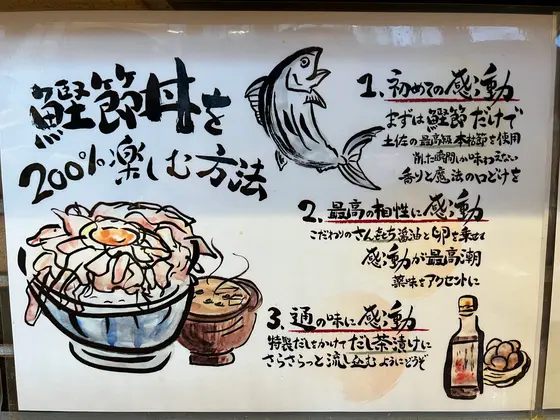 鰹節丼を
200%楽しむ方法
1. 初めての感動
まずは鰹節だけで
土佐の最高級本枯節を使用
削った瞬間しか味わえない
香りと魔法の口どけを
2. 最高の相性に感動
こだわりのさんもち醤油と卵を乗せ
感動が最高潮
薬味をアクセントに
3. 通の味に感動
特製だしをかけてだし茶漬けに
さらさらっと流し込むようにどうぞ